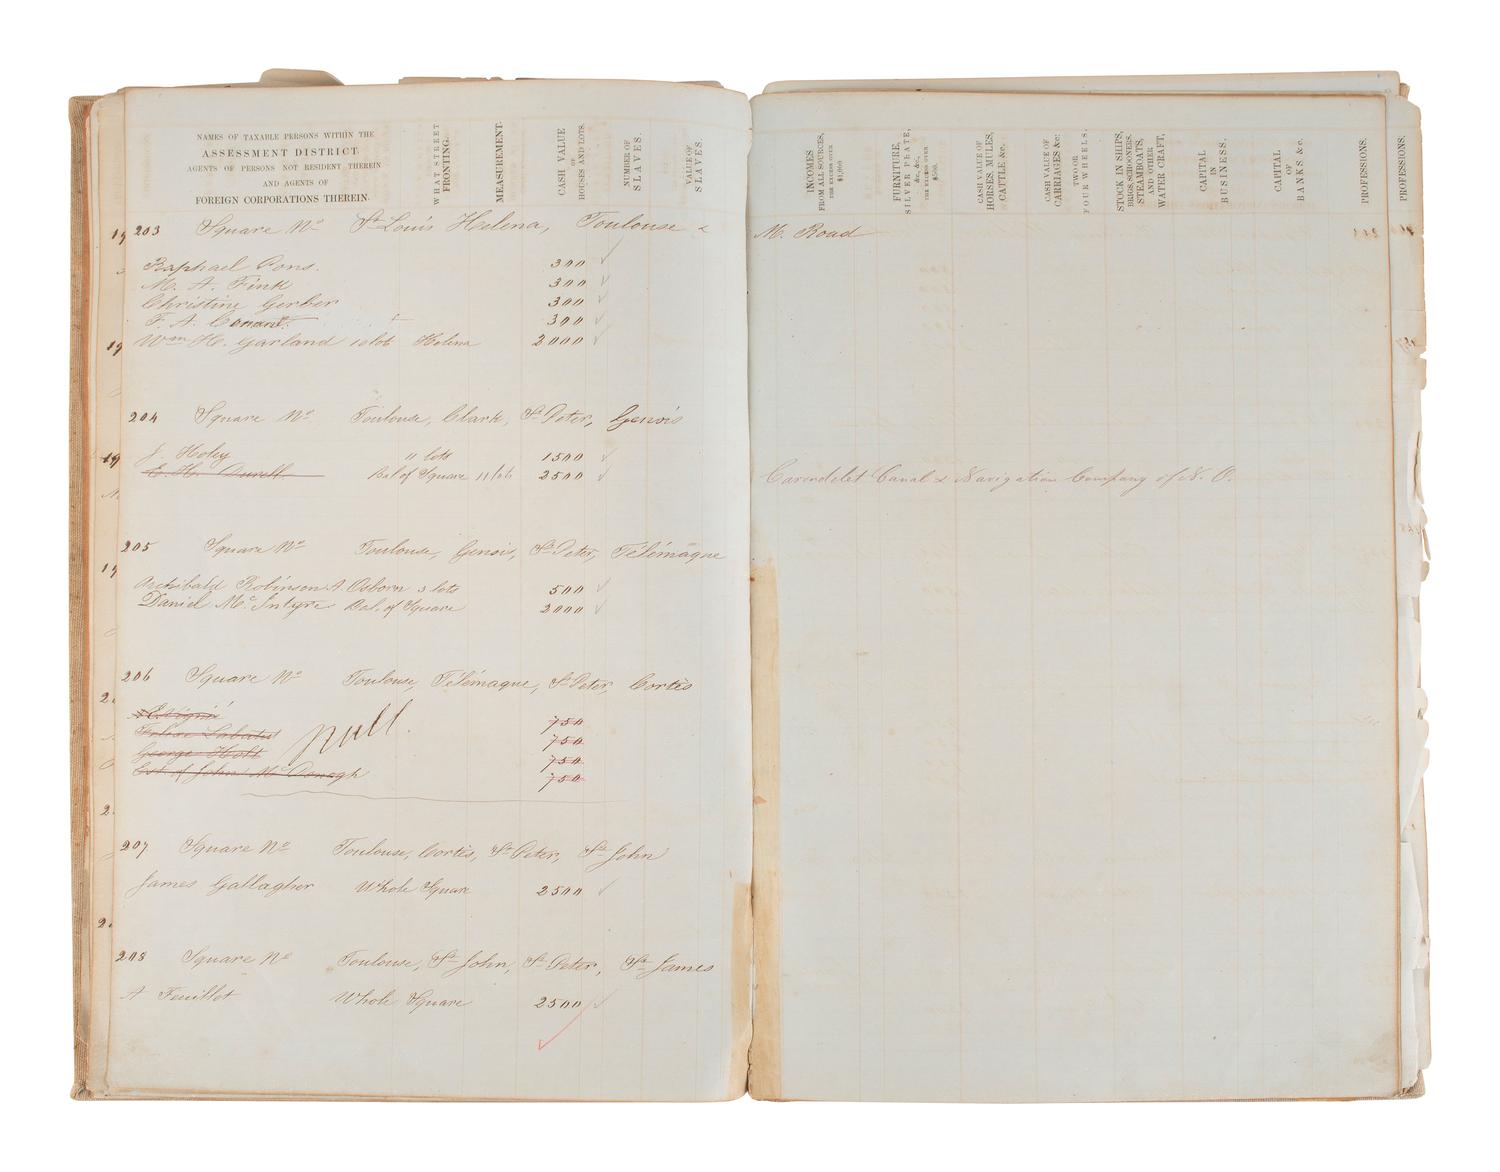 NAMES OF TAXABLE PERSONS WITHIN THE
ASSESSMENT DISTRICT.
AGENTS OF PERSONS NOT RESIDENT THEREIN
AND AGENTS OF
FOREIGN CORPORATIONS THEREIN.
WHAT STREET FRONTING.
MEASUREMENT.
CASH VALUE OF HOUSES AND LOTS.
NUMBER OF SLAVES.
VALUE OF SLAVES.
INCOMES FROM ALL SOURCES, THE EXCESS OVER $1,000
FURNITURE, SILVER PLATE, &c, &c, THE EXCESS OVER $500.
CASH VALUE OF HORSES, MULES, CATTLE &c.
CASH VALUE OF CARRIAGES &c: TWO OR FOUR WHEELS.
STOCK IN SHIPS, BRIGS, SCHOONERS, STEAMBOATS, AND OTHER WATER CRAFT,
CAPITAL IN BUSINESS.
CAPITAL OF BANKS &c.
PROFESSIONS.
PROFESSIONS.
203 Square No St Louis Helena, Toulouse & M. Road
Raphael Pons. 300
M. A. Fink 300
Christine Gerber 300
F. A. Conant. 300
Wm H. Garland 10 lots Helena 2000
204 Square No Toulouse, Clark, St Peter, Genois
J. Holey 11 lots 1500
E. H. Durell Bal of Square 11 lots 2500 Carondelet Canal & Navigation Company of N. O.
205 Square No Toulouse, Genois, St Peter, Télémaque
Archibald Robinson A. Osborn 3 lots 500
Daniel McIntyre Bal. of Square 2000
206 Square No Toulouse, Télémaque, St Peter, Cortès
750
null.
750
George Holt 750
Est. of John McDonogh 750
207 Square No Toulouse, Cortès, St Peter, St John
James Gallagher Whole Square 2500
208 Square No Toulouse, St John, St Peter, St James
A Feuillet Whole Square 2500